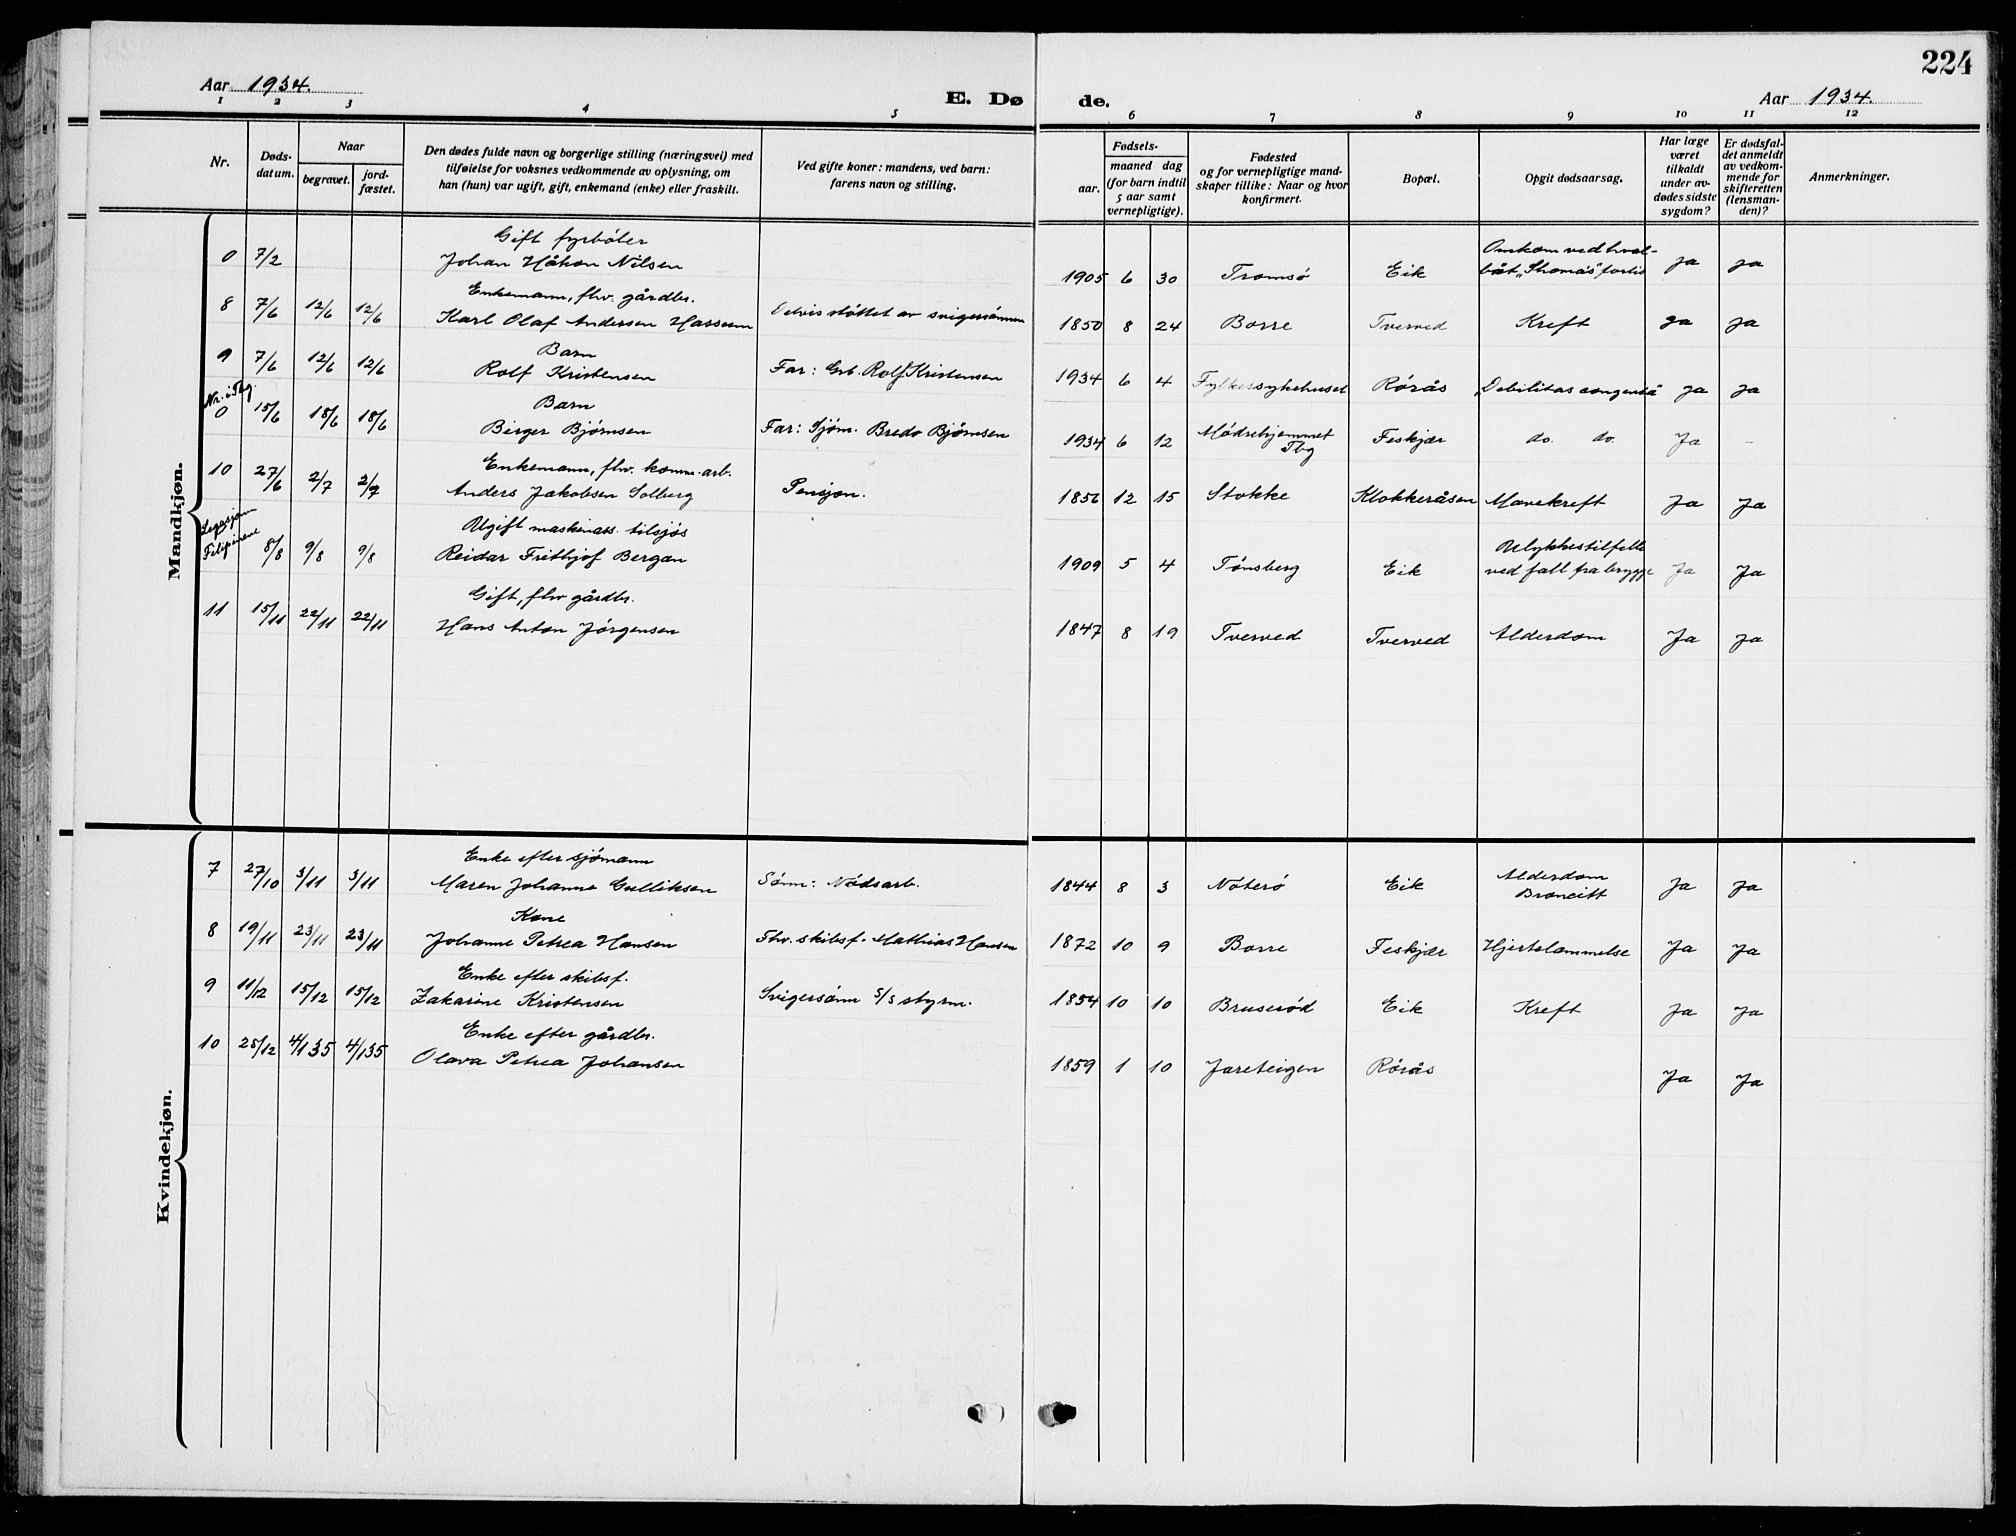 224
Aar 1934.
E. Døde.
Aar 1934.
1 2 3 4 5 6 7 8 9 10 11 12
Nr.
Døds-
datum.
Naar
begravet.
jord-
fæstet.
Den dødes fulde navn og borgerlige stilling (næringsvei) med
tilføielse for voksnes vedkommende av oplysning, om
han (hun) var ugift, gift, enkemand (enke) eller fraskilt.
Ved gifte koner: mandens, ved barn:
farens navn og stilling.
Fødsels-
aar.
maaned dag
(for barn indtil
5 aar samt
vernepligtige).
Fødested
og for vernepligtige mand-
skaper tillike: Naar og hvor
konfirmert.
Bopæl.
Opgit dødsaarsag.
Har læge
været
tilkaldt
under av-
dødes sidste
sygdom?
Er dødsfal-
det anmeldt
av vedkom-
mende for
skifteretten
(lensman-
den)?
Anmerkninger.
Mandkjøn.
Gift fyrbøter Omkom ved hval-
0 7/2 Johan Håkon Nilsen 1905 6 30 Tromsø Eik båt „Thomas" forlis ja ja
Enkemann, fhv. gårdbr.
8 7/6 12/6 12/6 Karl Olaf Andersen Delvis støttet av svigersønnen 1850 8 24 Borre Tverved Kreft ja ja
Barn
9 7/6 12/6 12/6 Rolf Kristensen Far: Grb. Rolf Kristensen 1934 6 4 Fylkessykehuset Rørås „Debilitas congenita" ja ja
Nr. i Tbg. Barn
0 15/6 18/6 18/6 Birger Bjørnsen Far: Sjøm. Bredo Bjørnsen 1934 6 12 Mødrehjemmet Tbg Feskjær do. do. Ja –
Enkemann, fhv. komm. arb.
10 27/6 2/7 2/7 Anders Jakobsen Solberg Pensjon. 1856 12 15 Stokke Klokkeråsen Mavekreft Ja Ja
Legasjon Ugift maskinass. tilsjøs Ulykkestilfelle
Filipinene 8/8 9/8 9/8 Reidar Frithjof Bergan 1909 5 4 Tønsberg Eik ved fall fra brygge Ja Ja
Gift, fhv gårdbr.
11 15/11 22/11 22/11 Hans Anton Jørgensen 1847 8 19 Tverved Tverved Alderdom Ja Ja
Kvindekjøn.
Enke efter sjømann Alderdom
7 27/10 3/11 3/11 Maren Johanne Gulliksen Sønn: Nødsarb. 1844 8 3 Nøterø Eik Broncitt Ja Ja
Kone
8 19/11 23/11 23/11 Johanne Petrea Hansen Fhv. skibsf. Mathias Hansen 1872 10 9 Borre Feskjær Hjertelammelse Ja Ja
Enke efter skibsf.
9 11/12 15/12 15/12 Zakarine Kristensen Svigersønn s/s styrm. 1854 10 10 Bruserød Eik Kreft Ja Ja
Enke efter gårdbr.
10 28/12 4/1 35 4/1 35 Olava Petrea Johansen 1859 1 10 Jareteigen Rørås Ja Ja